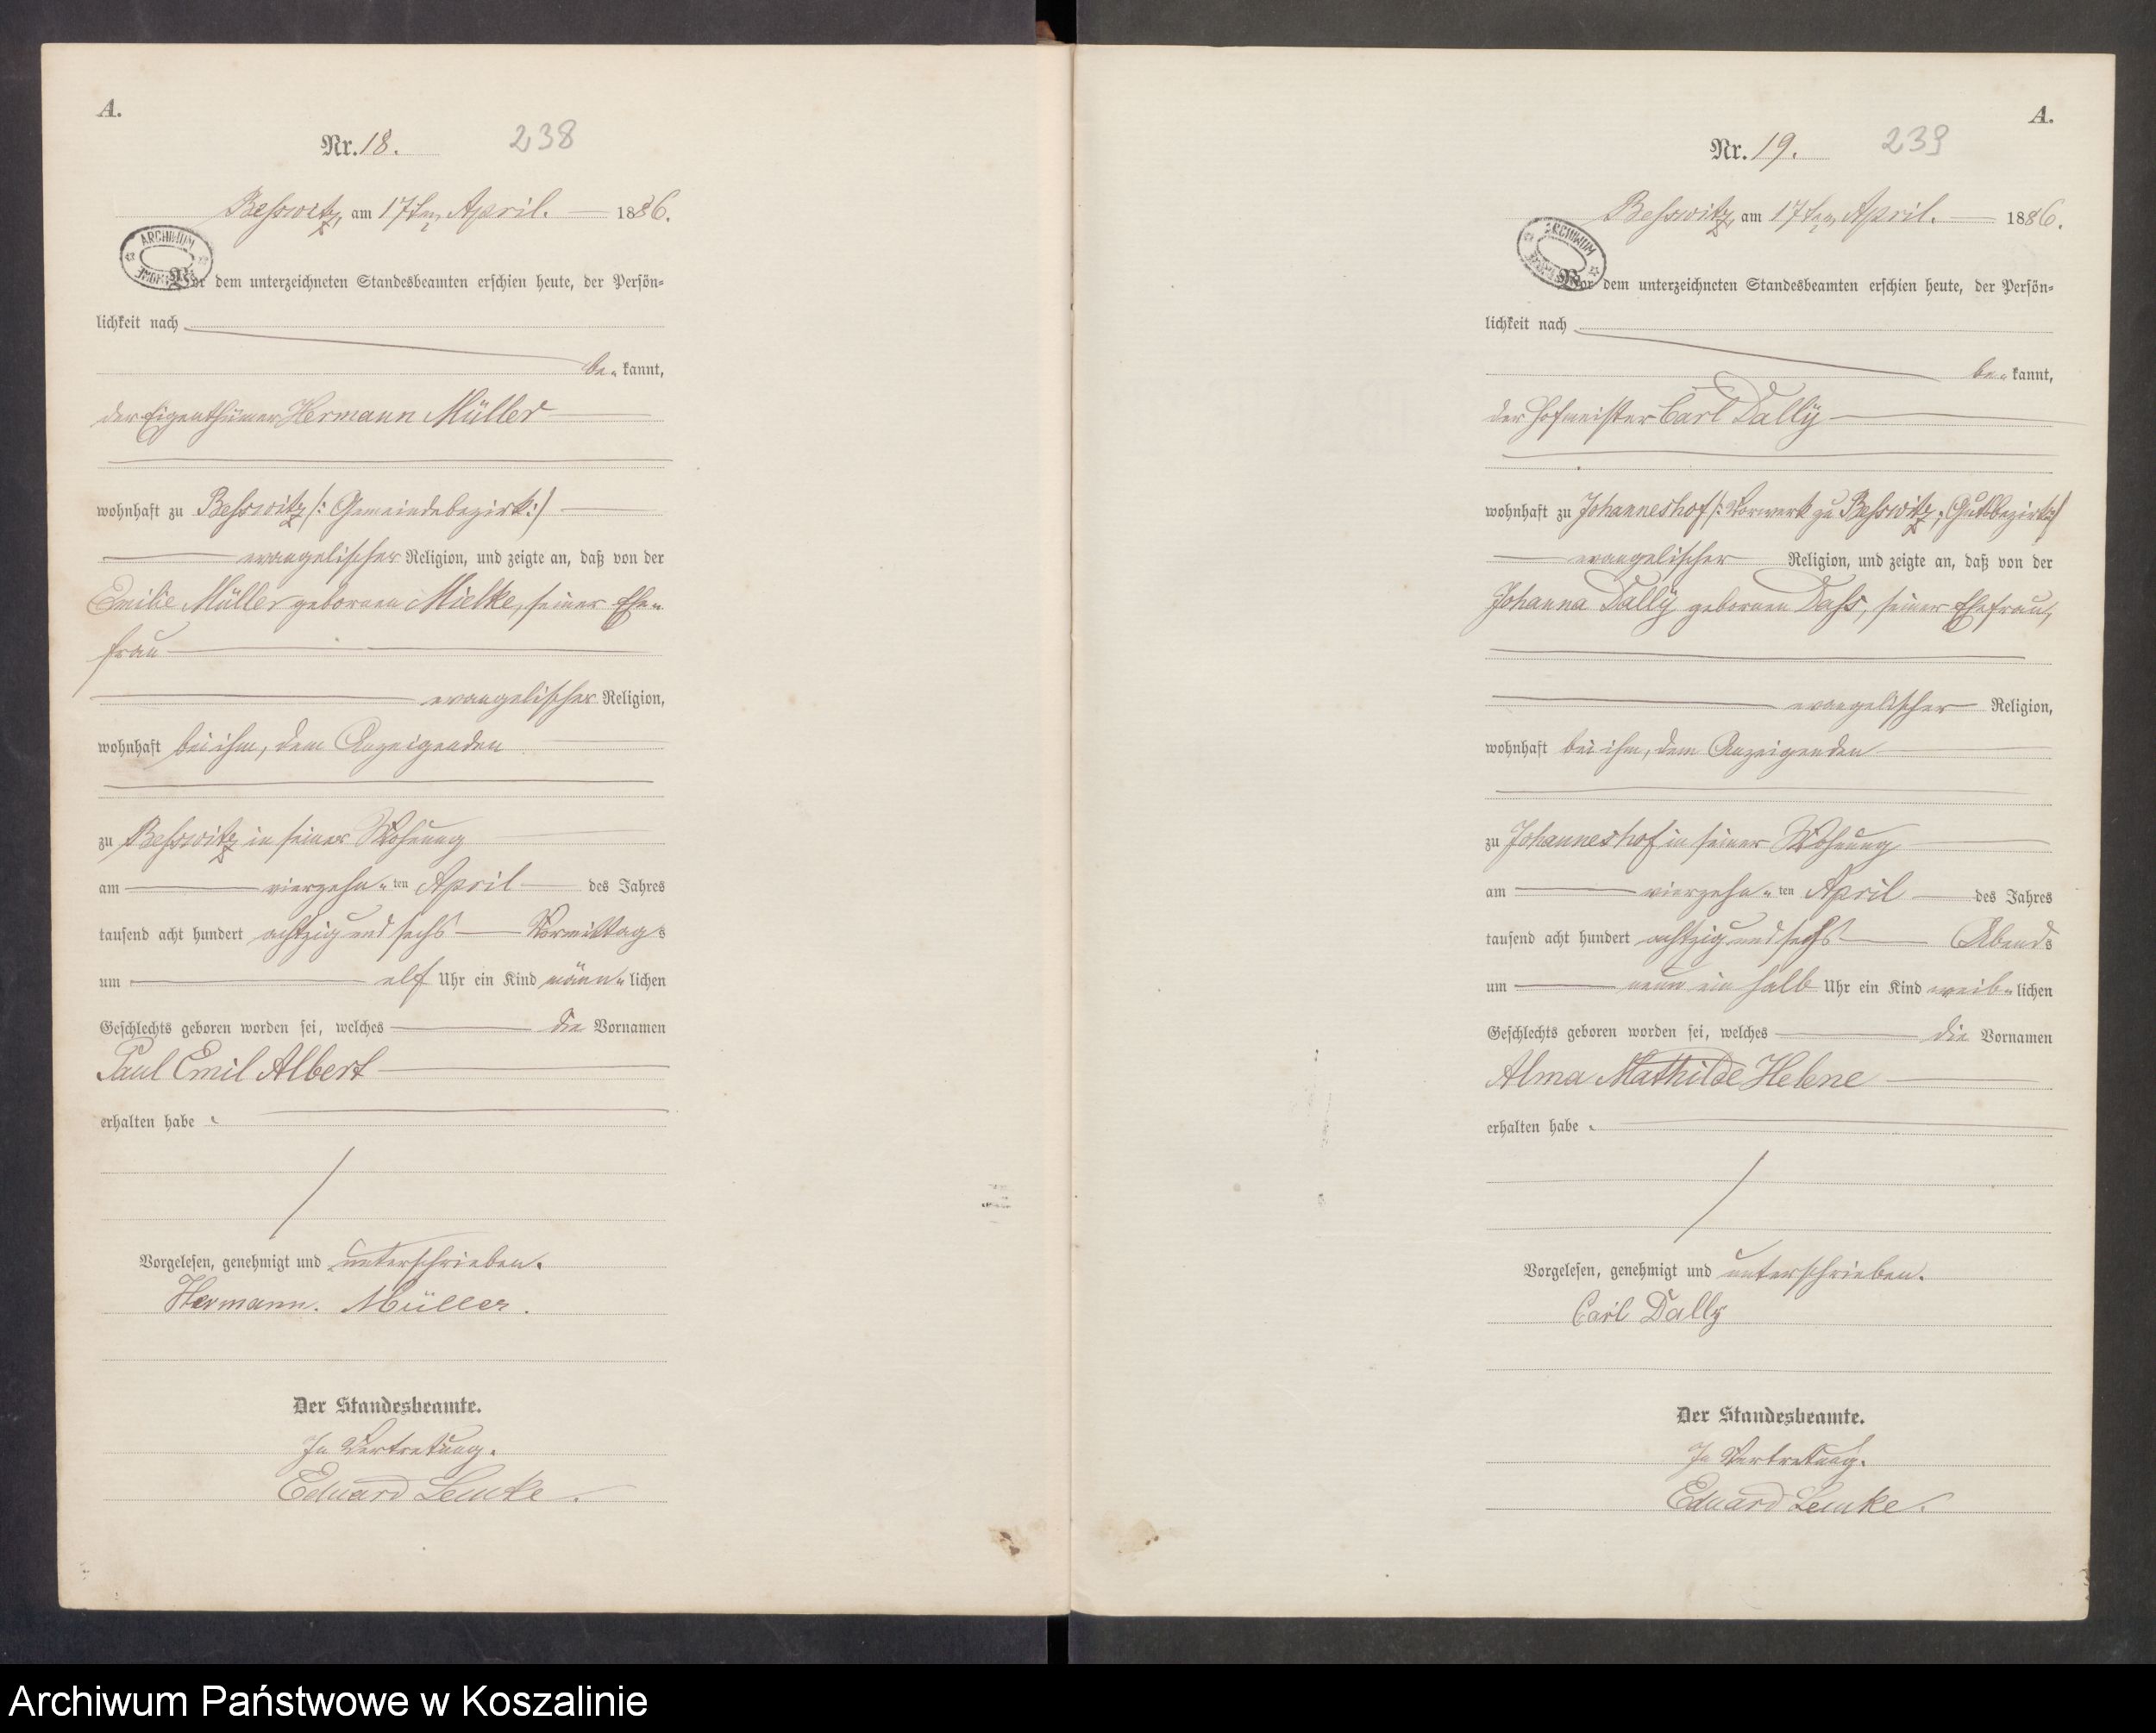 A.
Nr. 18. 238
Beßwitz, am 17ten April. 1886.
ARCHIWUM
Vor dem unterzeichneten Standesbeamten erschien heute, der Persön=
lichkeit nach
be= kannt,
der Eigenthümer Hermann Müller
wohnhaft zu Beßwitz /: Gemeindebezirk :/
evangelischer Religion, und zeigte an, daß von der
Emilie Müller geborenen Mielke, seiner Ehe=
frau
evangelischer Religion,
wohnhaft bei ihm, dem Anzeigenden
zu Beßwitz in seiner Wohnung
am vierzehn= ten April des Jahres
tausend acht hundert achtzig und sechs Vormittags
um elf Uhr ein Kind männ= lichen
Geschlechts geboren worden sei, welches die Vornamen
Paul Emil Albert
erhalten habe.
Vorgelesen, genehmigt und unterschrieben.
Hermann. Müller.
Der Standesbeamte.
In Vertretung.
Eduard Lemke.
A.
Nr. 19. 239
Beßwitz, am 17ten April. 1886.
ARCHIWUM
Vor dem unterzeichneten Standesbeamten erschien heute, der Persön=
lichkeit nach
be= kannt,
der Hofmeister Carl Dally
wohnhaft zu Johanneshof /: Vorwerk zu Beßwitz, Gutsbezirk :/
evangelischer Religion, und zeigte an, daß von der
Johanna Dally geborenen Daß, seiner Ehefrau,
evangelischer Religion,
wohnhaft bei ihm, dem Anzeigenden
zu Johanneshof in seiner Wohnung
am vierzehn= ten April des Jahres
tausend acht hundert achtzig und sechs Abends
um neun ein halb Uhr ein Kind weib= lichen
Geschlechts geboren worden sei, welches die Vornamen
Alma Mathilde Helene
erhalten habe.
Vorgelesen, genehmigt und unterschrieben.
Carl Dally
Der Standesbeamte.
In Vertretung.
Eduard Lemke.
Archiwum Państwowe w Koszalinie